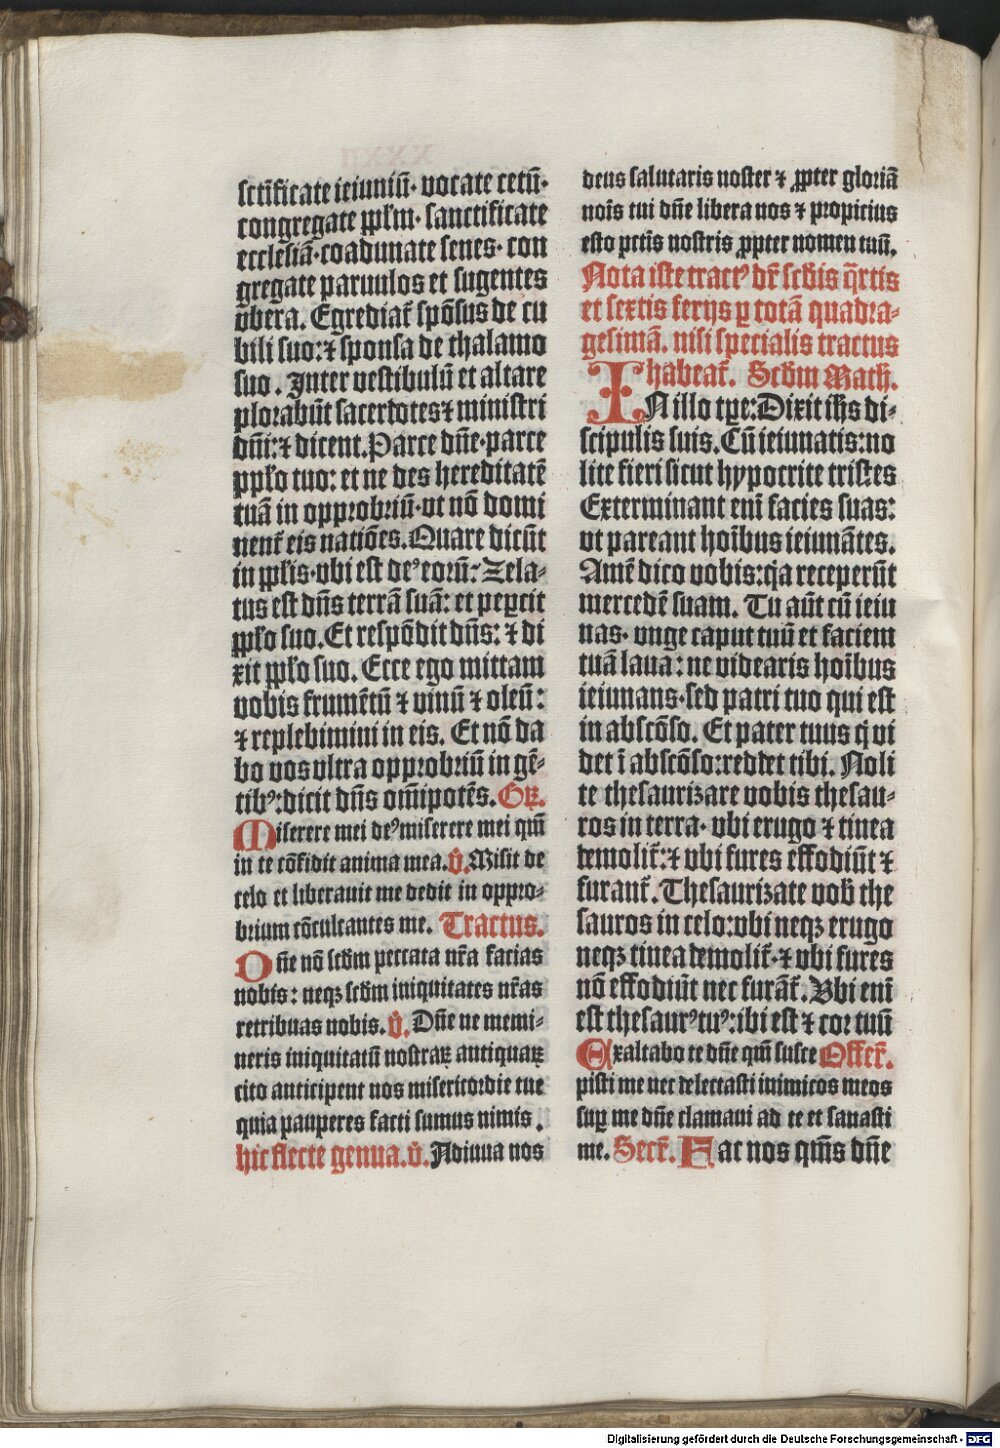 sctīficate ieiuniū· vocate cetū·
congregate pplm̄· sanctificate
ecclesiā·coadunate senes· con
gregate paruulos et sugentes
vbera. Egrediat᷑ spōsus de cu
bili suo:⁊ sponsa de thalamo
suo. Inter vestibulū et altare
plorabūt sacerdotes ⁊ ministri
dn̄i:⁊ dicent.Parce dn̄e·parce
pplo tuo: et ne des hereditatē
tuā in opprobriū·vt nō domi
nent᷑ eis natiōes.Quare dicūt
in pplis·vbi est deꝰ eorū· Zela-
tus est dn̄s terrā suā: et peꝑcit
pplo suo.Et respōdit dn̄s: ⁊ di
xit pplo suo. Ecce ego mittam
vobis frumētū ⁊ vinū ⁊ oleū:
⁊ replebimini in eis. Et nō da
bo vos vltra opprobriū in gē-
tibꝰ:dicit dn̄s om̄ipotēs. Gr̄.
Miserere mei deꝰ miserere mei qm̄
in te cōfidit anima mea. v̄. Misit de
celo et liberauit me dedit in oppro-
brium cōculcantes me. Tractus.
Dn̄e nō scd̄m peccata nr̄a facias
nobis: neqꝫ scd̄m iniquitates nr̄as
retribuas nobis. v̄. Dn̄e ne memi-
neris iniquitatū nostraꝝ antiquaꝝ
cito anticipent nos misericordie tue
quia pauperes facti sumus nimis.
hic flecte genua. v̄. Adiuua nos
deus salutaris noster ⁊ ꝓpter gloriā
noīs tui dn̄e libera nos ⁊ propicius
esto pctīs nostris ꝓpter nomen tuū.
Nota iste tractꝰ dr̄ scd̄is q̄rtis
et sextis ferijs ꝑ totā quadra-
gesimā. nisi specialis tractus
habeat᷑. Scd̄m Math.
IN illo tꝑe: Dixit ih̄s di-
scipulis suis. Cū ieiunatis: no
lite fieri sicut hypocrite tristes
Exterminant enī facies suas:
vt pareant hoībus ieiunātes.
Amē dico vobis: qa receperūt
mercedē suam. Tu aūt cū ieiu
nas· vnge caput tuū et faciem
tuā laua: ne videaris hoībus
ieiunans·sed patri tuo qui est
in abscōso. Et pater tuus q vi
det ī abscōso: reddet tibi. Noli
te thesaurizare vobis thesau-
ros in terra· vbi erugo ⁊ tinea
demolit᷑:⁊ vbi fures effodiūt ⁊
furant᷑. Thesaurizate vob̄ the
sauros in celo: vbi neqꝫ erugo
neqꝫ tinea demolit᷑·⁊ vbi fures
nō effodiūt nec furāt᷑. Vbi enī
est thesaurꝰ tuꝰ: ibi est ⁊ cor tuū
Exaltabo te dn̄e qm̄ susce Offer̄.
pisti me nec delectasti inimicos meos
suꝑ me dn̄e clamaui ad te et sanasti
me. Secr̄. Fac nos qm̄s dn̄e
Digitalisierung gefördert durch die Deutsche Forschungsgemeinschaft - DFG